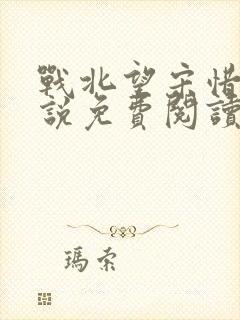 戰北望宋惜
說免費閱讀
瑪索